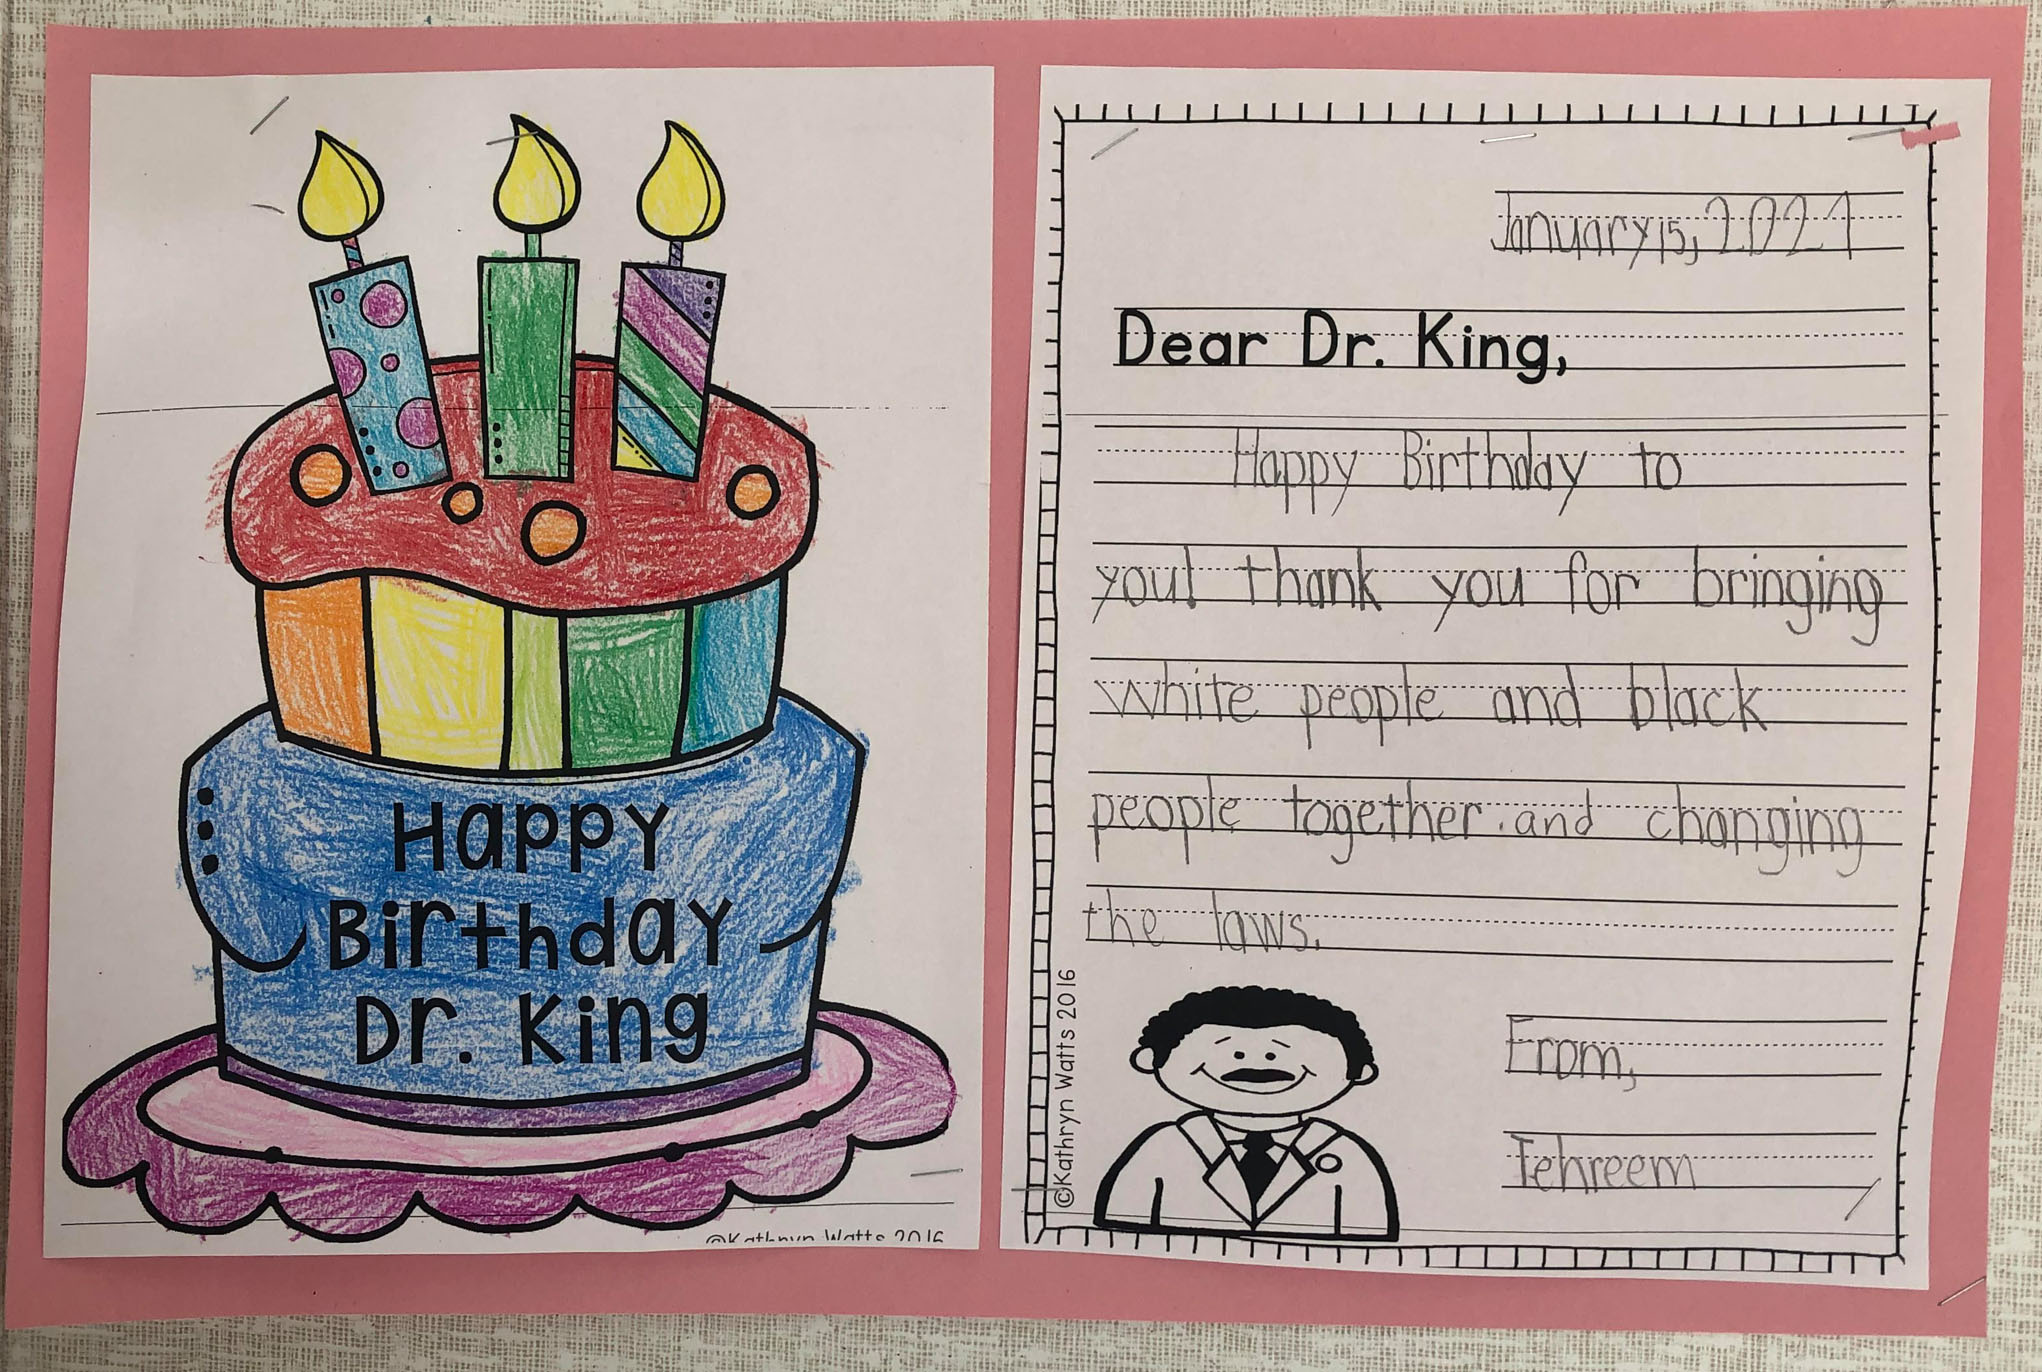 Happy
Birthday
Dr. King
©Kathryn Watts 2016
January 15, 2021
Dear Dr. King,
Happy Birthday to
you! thank you for bringing
white people and black
people together. and changing
the laws.
©Kathryn Watts 2016
From,
Tehreem